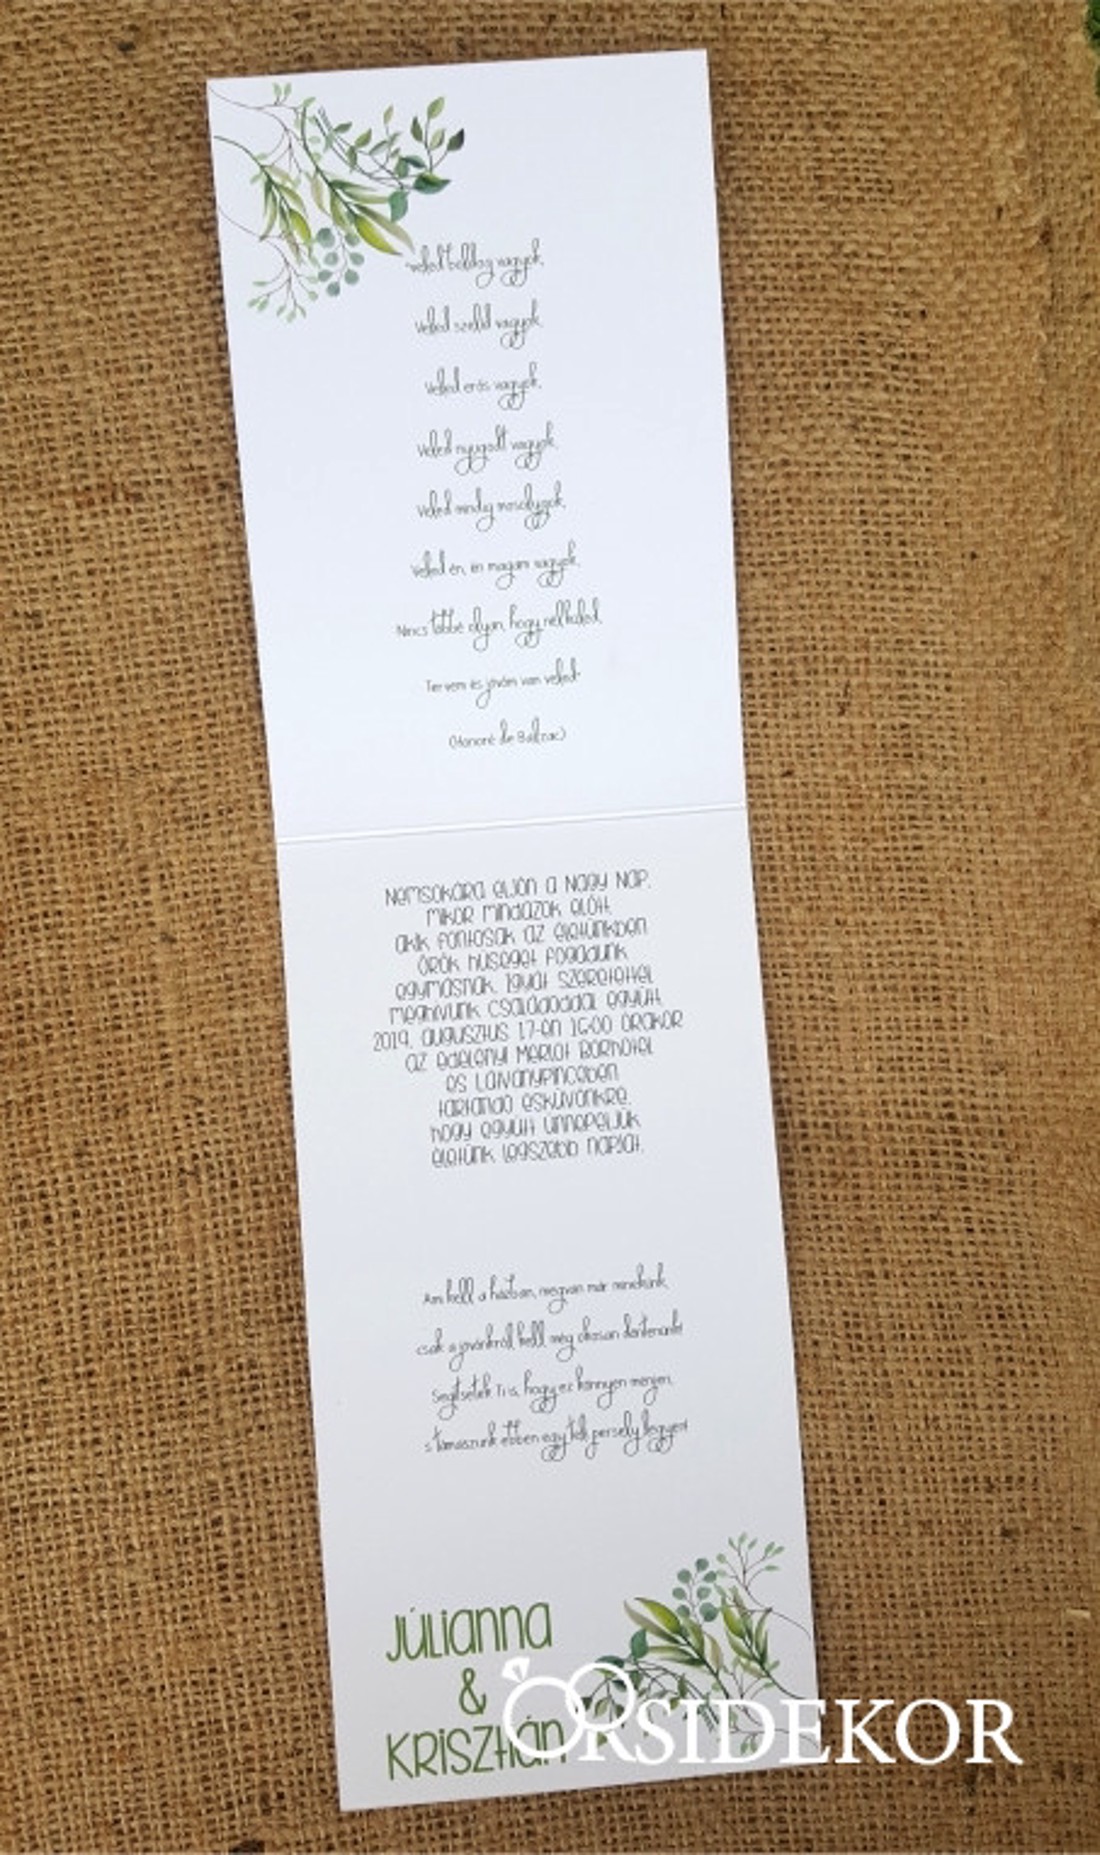 "Veled boldog vagyok,
Veled szelíd vagyok,
Veled erős vagyok,
Veled nyugodt vagyok,
Veled mindig mosolygok,
Veled én, én magam vagyok,
Nincs többé olyan, hogy nélküled,
Tervem és jövőm van veled"
(Honoré de Balzac)
Nemsokára eljön a Nagy Nap,
mikor mindazok előtt,
akik fontosak az életünkben
örök hűséget fogadunk
egymásnak. Így hát szeretettel
meghívunk családoddal együtt
2019. augusztus 17-én 16:00 órakor
az edelényi Merlot Borhotel
és Látványpincében
tartandó esküvőnkre,
hogy együtt ünnepeljük
életünk legszebb napját.
Ami kell a házban, megvan már minekünk,
csak a jövőnkről kell még okosan döntenünk!
Segítsetek Ti is, hogy ez könnyen menjen,
s támaszunk ebben egy teli persely legyen!
Júlianna
&
Krisztián
ORSIDEKOR